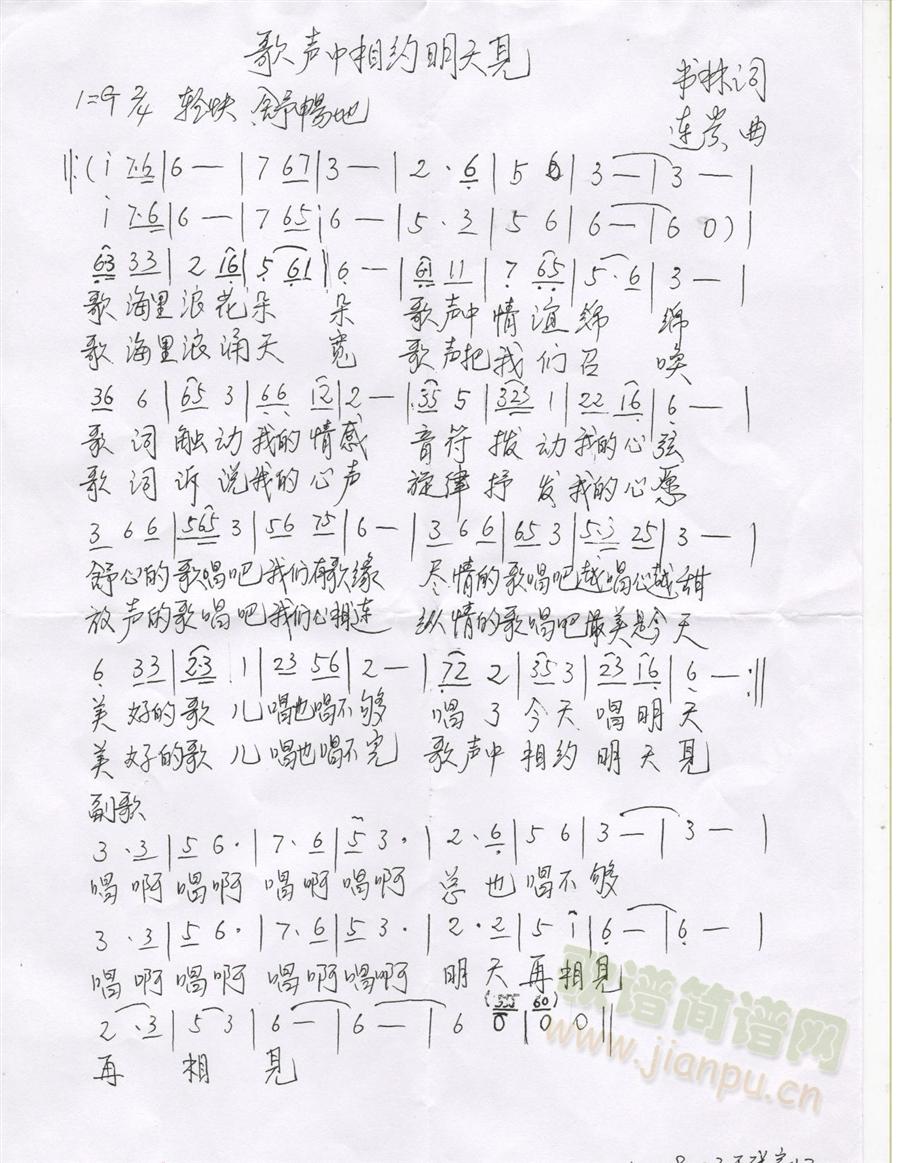 歌声中相约明天见
书林词
1=G 2/4 轻快 舒畅地
连贵曲
‖:(i 7·6|6 —|7 67|3 —|2·6|5 6|3 —|3 —|
i 7·6|6 —|7 65|6 —|5·3|5 6|6 —|6 0)|
63 33|2 16|5 61|6 —|61 11|7 65|5·6|3 —|
歌海里浪花朵 朵 歌声中情谊绵 绵
歌海里浪涌天 宽 歌声把我们召 唤
36 6|65 3|66 12|2 —|35 5|323 1|22 16|6 —|
歌词触动我的情感 音符拨动我的心弦
歌词诉说我的心声 旋律抒发我的心愿
3 6 6|565 3|56 75|6 —|3 6 6|65 3|5·3 25|3 —|
舒心的歌唱吧我们有歌缘 尽情的歌唱吧越唱心越甜
放声的歌唱吧我们心相连 纵情的歌唱吧最美是今天
6 33|2·3 1|23 56|2 —|72 2|35 3|23 16|6 —:‖
美好的歌儿唱也唱不够 唱了今天唱明天
美好的歌儿唱也唱不完 歌声中相约明天见
副歌
3·3|5 6·|7·6|5 3·|2·6|5 6|3 —|3 —|
唱啊唱啊唱啊唱啊 总也唱不够
3·3|5 6·|7·6|5 3·|2·2|5 i|6 —|6 —|
唱啊唱啊唱啊唱啊 明天再相见
(555 60)
2·3|5 3|6 —|6 —|6 0|0 0‖
再 相 见
歌谱简谱网
www.jianpu.cn